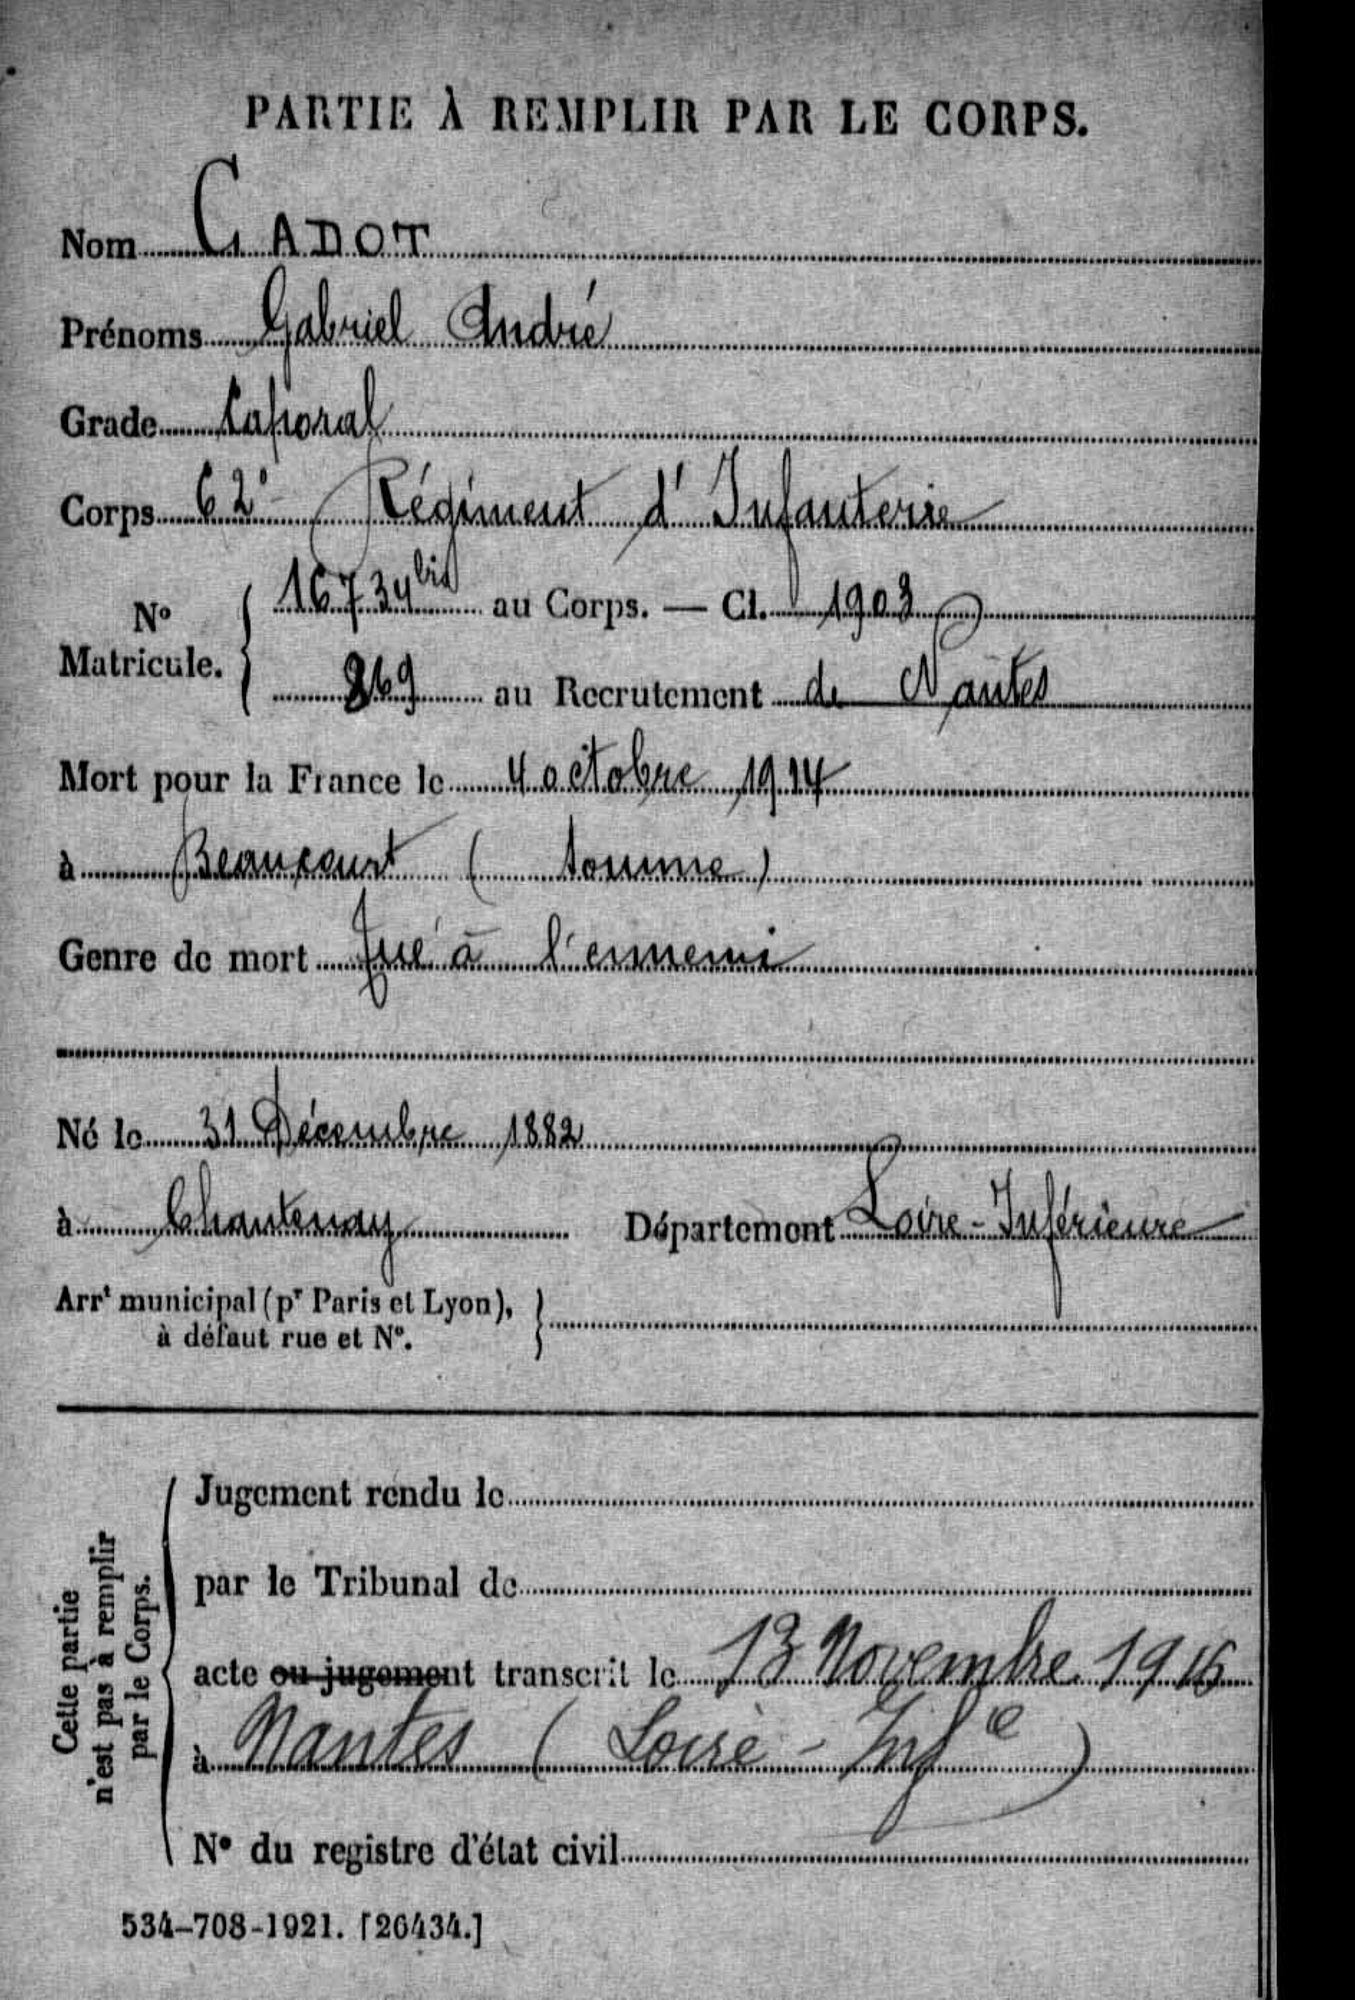 PARTIE À REMPLIR PAR LE CORPS.
Nom CADOT
Prénoms Gabriel André
Grade Caporal
Corps 62e Régiment d'Infanterie
N° Matricule. { 16734 bis au Corps. — Cl. 1903
869 au Recrutement de Nantes
Mort pour la France le 4 octobre 1914
à Beaucourt (Somme)
Genre de mort Tué à l'ennemi
Né le 31 Décembre 1882
à Chantenay Département Loire-Inférieure
Arrt municipal (pr Paris et Lyon), }
à défaut rue et N°.
Cette partie
n'est pas à remplir
par le Corps.
Jugement rendu le
par le Tribunal de
acte ou jugement transcrit le 13 Novembre 1916
à Nantes (Loire-Infe)
N° du registre d'état civil
534-708-1921. [26434.]